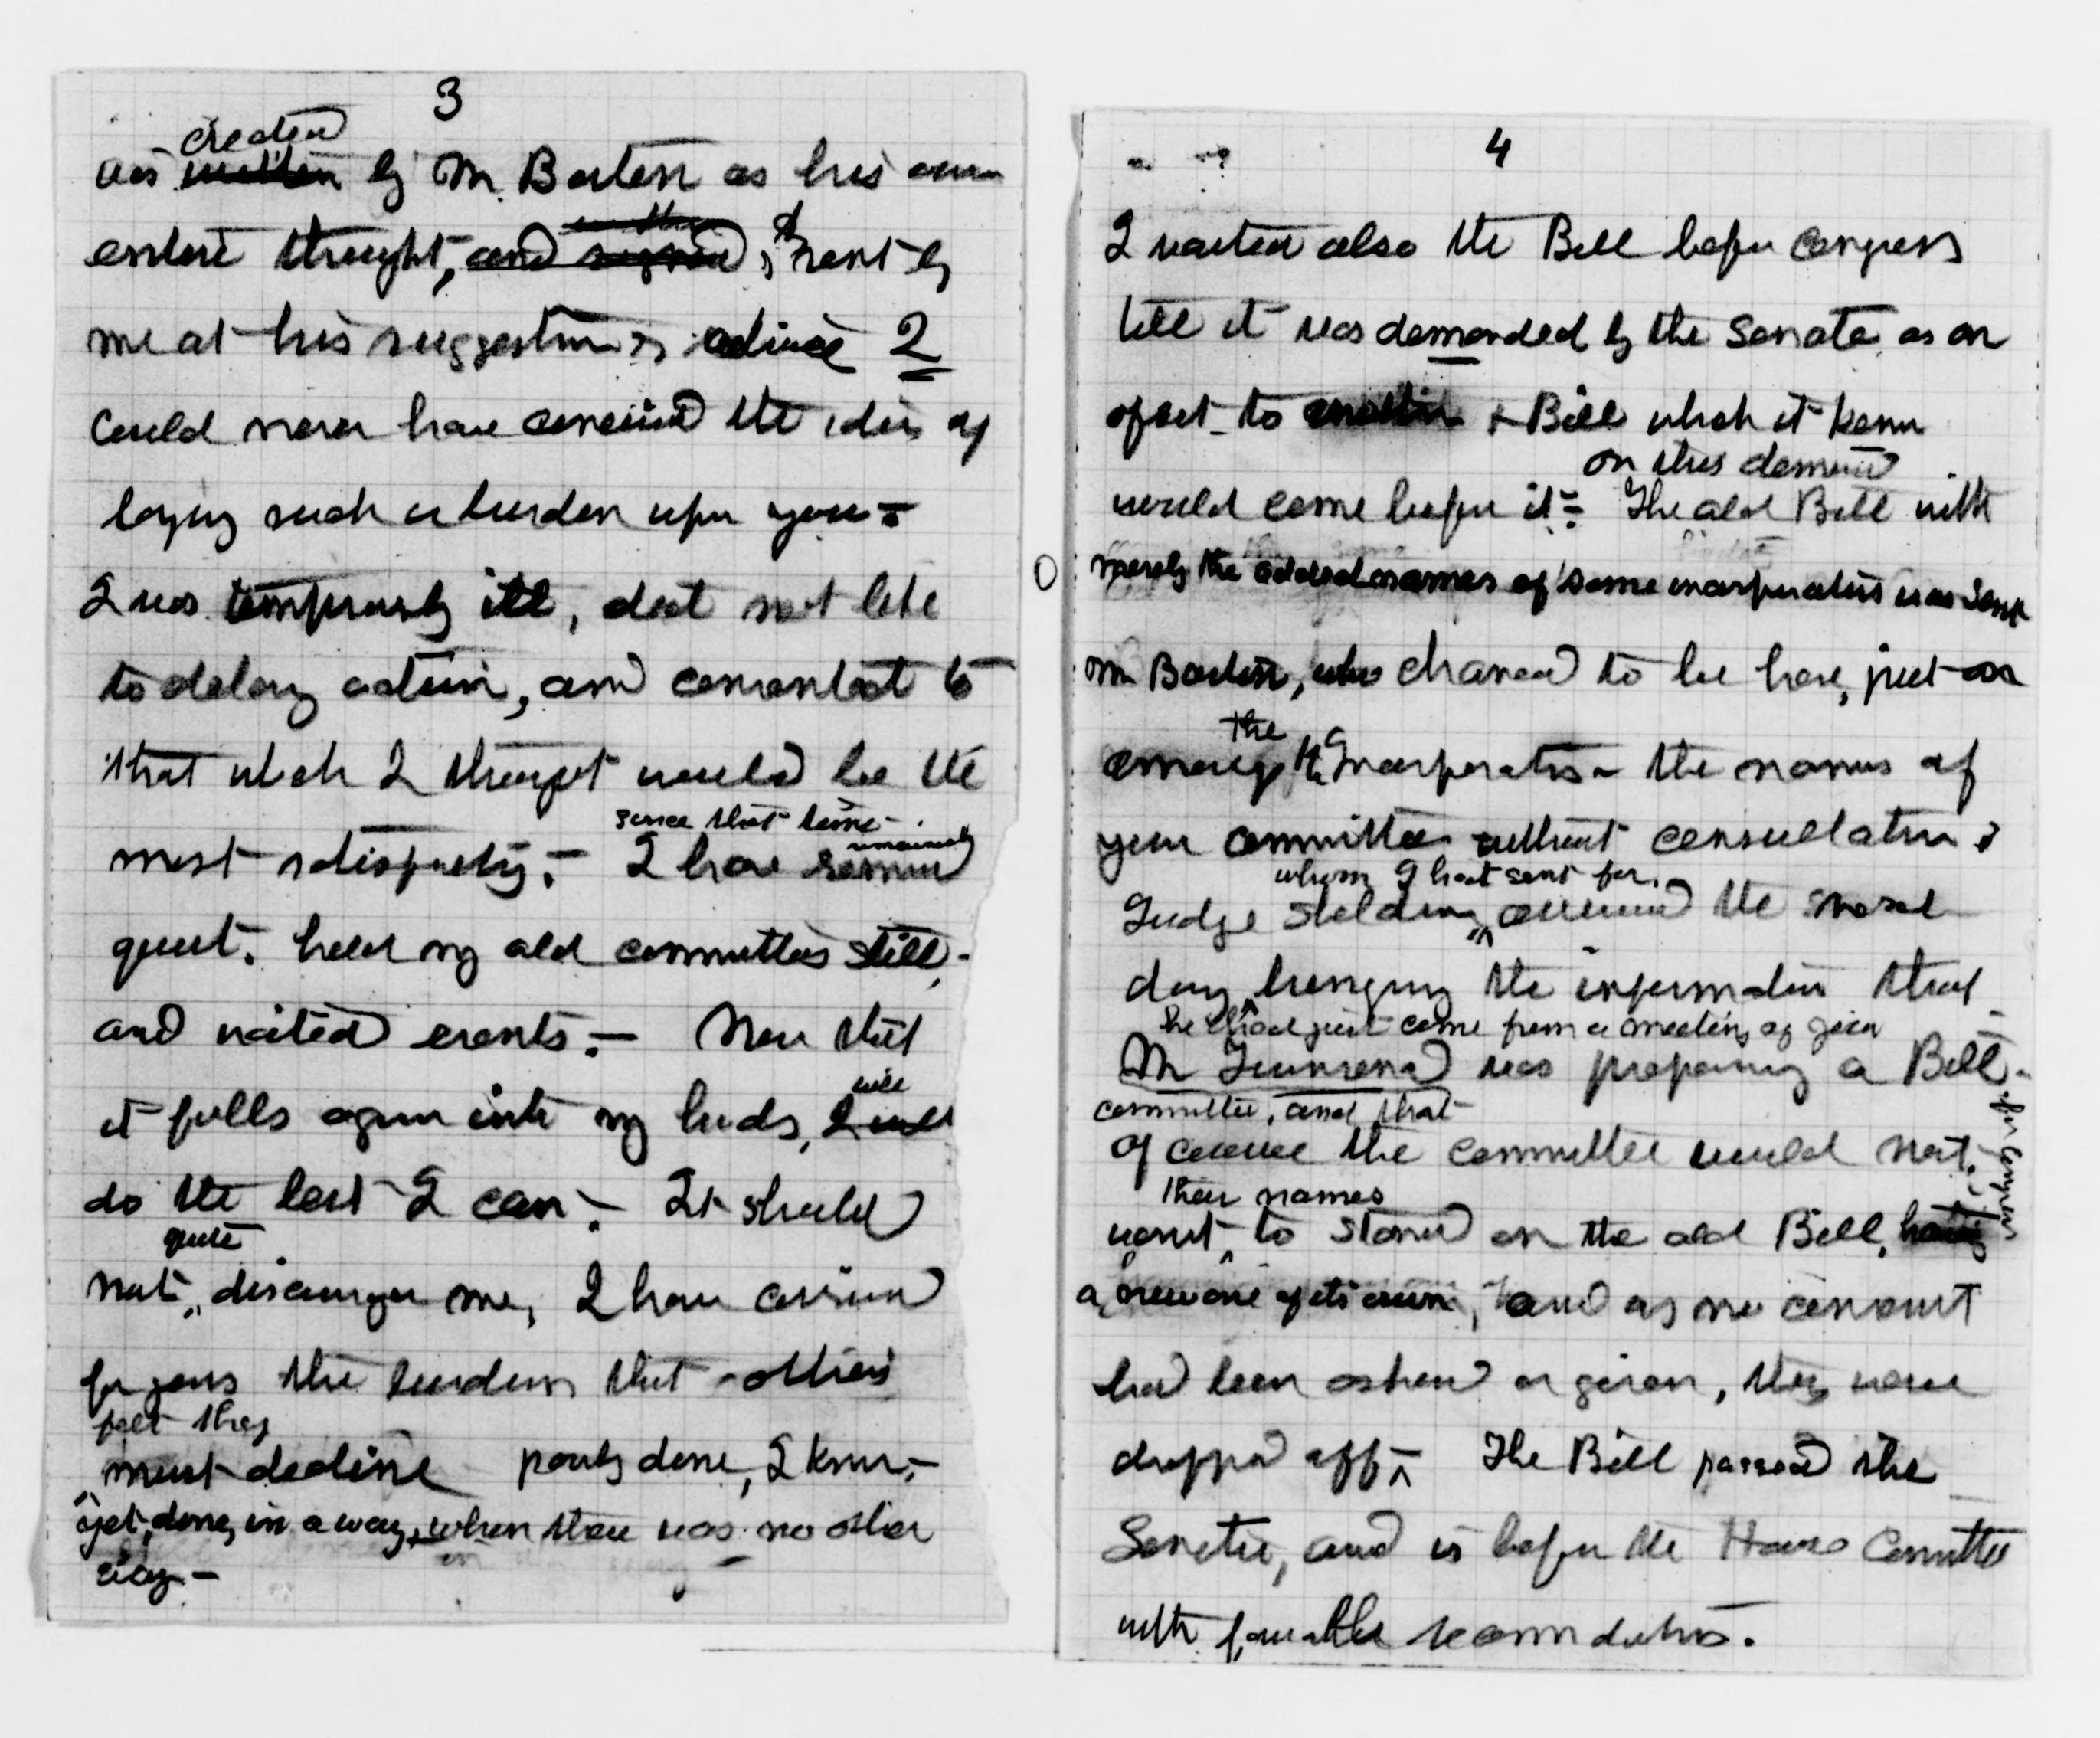 3
created
was written by Mr. Barton as his own
entire thought, and signed & sent by
me at his suggestion & advice I
could never have conceived the idea of
laying such a burden upon you –
I was temporarily ill, did not like
to delay action, and consented to
that which I thought would be the
since that time
most satisfactory. – I have remained
quiet. held my old committees still,
and waited events. – Now that
will
it falls again into my hands, I will
do the best I can. – It should
quite
not discourage me, I have carried
for years the burdens that others
felt they
must decline poorly done, I know, –
yet, done, in a way, when there was no other
way –
4
I waited also the Bill before Congress
till it was demanded by the Senate as an
offset to another Bill which it knew
on this demand
would come before it – The old Bill with
merely the added names of some incorporators was sent
Mr Barton, who chanced to be here, put on
the
among the Incorporators – the names of
your committee without consultation &
whom I had sent for
Judge Sheldon, arrived the same
day, bringing the information that
he had just come from a meeting of your
Mr Townsend was preparing a Bill –
for Congress
committee, and that
of course the committee would not
their names
want to stand on the old Bill, having
a new one of its own, and as no consent
had been asked or given, they were
dropped off – The Bill passed the
Senate, and is before the House Committee
with favorable recommendations.